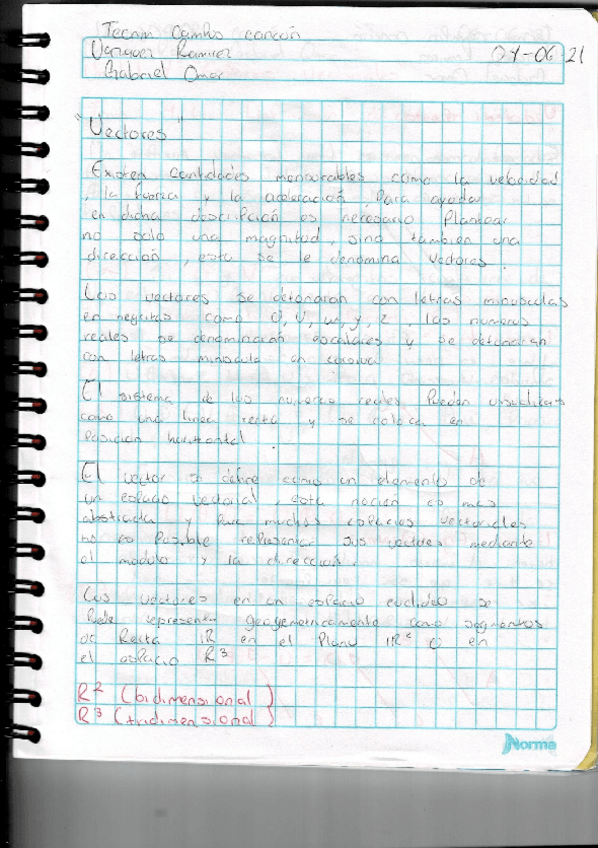 Tecnm Campus Cancún
Vazquez Ramirez 04-06-21
Gabriel Omar
"Vectores"
Existen cantidades mensurables como la velocidad
, la fuerza y la aceleración, Para ayudar
en dicha descripción es necesario Plantear
no solo una magnitud, sino tambien una
dirección, esto se le denomina vectores.
Los vectores se detonaran con letras minusculas
en negritas como u, v, w, y, z, los numeros
reales se denominaran escalares y se detonaran
con letras miniscula en cursiva
El sistema de los numeros reales Pueden visualizar
como una linea recta y se coloca en
Posición horizontal.
El vector se define como un elemento de
un espacio vectorial, esta noción es mas
abstracta y Para muchos espacios vectoriales
no es Posible representar sus vectores mediante
el modulo y la dirección.
Los vectores en un espacio euclideo se
Puede representar geogemetricamente como segmentos
de Recta IR en el Plano IR² o en
el espacio R³
R² (bidimensional)
R³ (tridimensional)
Norma